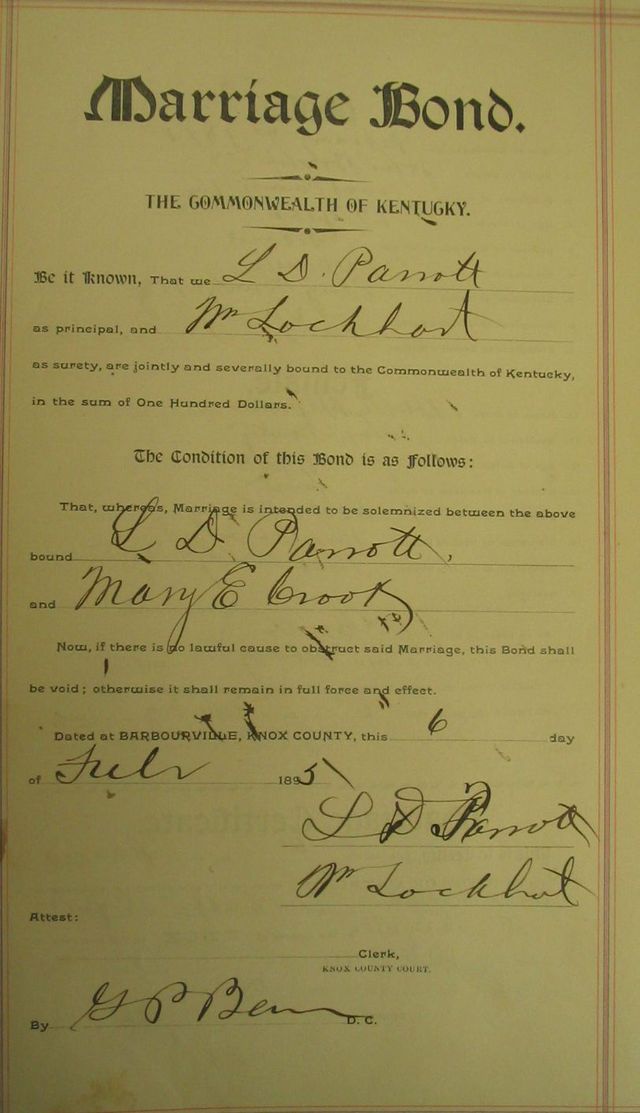 Marriage Bond.
THE COMMONWEALTH OF KENTUCKY.
Be it Known, That we L D. Parrott
as principal, and Wm Lockhart
as surety, are jointly and severally bound to the Commonwealth of Kentucky,
in the sum of One Hundred Dollars.
The Condition of this Bond is as Follows:
That, whereas, Marriage is intended to be solemnized between the above
bound L D Parrott,
and Mary E Crook
Now, if there is no lawful cause to obstruct said Marriage, this Bond shall
be void; otherwise it shall remain in full force and effect.
Dated at BARBOURVILLE, KNOX COUNTY, this 6 day
of Feb 1895
L D Parrott
Wm Lockhart
Attest:
Clerk,
KNOX COUNTY COURT.
By G P D. C.